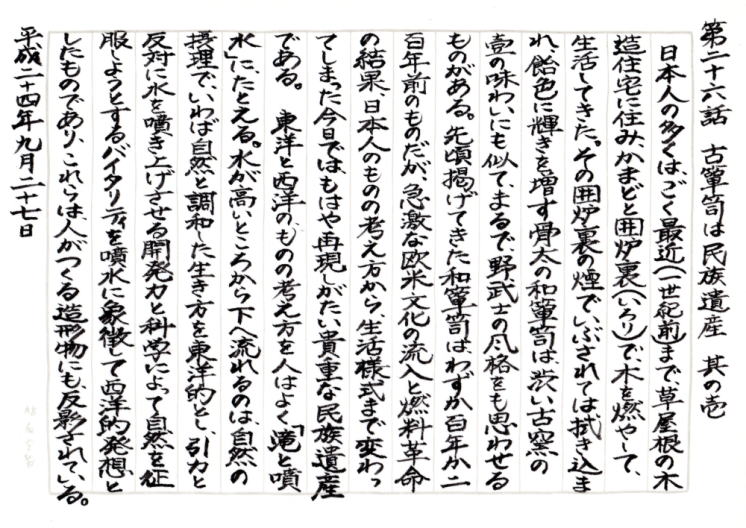 第二十六話　古箪笥は民族遺産　其の壱
日本人の多くは、ごく最近(一世紀前)まで、草屋根の木
造住宅に住み、かまどと囲炉裏(いろり)で、木を燃やして、
生活してきた。その囲炉裏の煙で、いぶされては拭き込ま
れ、飴色に輝きを増す骨太の和箪笥は、渋い古窯の
壺の味わいにも似て、まるで、野武士の風格をも思わせる
ものがある。先頃掲げてきた和箪笥は、わずか百年か二
百年前のものだが、急激な欧米文化の流入と燃料革命
の結果、日本人のものの考え方から、生活様式まで変わっ
てしまった今日では、もはや再現しがたい貴重な民族遺産
である。　東洋と西洋の、ものの考え方を人はよく「滝と噴
水」に、たとえる。水が高いところから下へ流れるのは、自然の
摂理で、いわば自然と調和した生き方を東洋的とし、引力と
反対に水を噴き上げさせる開発力と科学によって自然を征
服しようとするバイタリティを噴水に象徴して西洋的発想と
したものであり、これらは、人がつくる造形物にも、反影されている。
平成二十四年九月二十七日